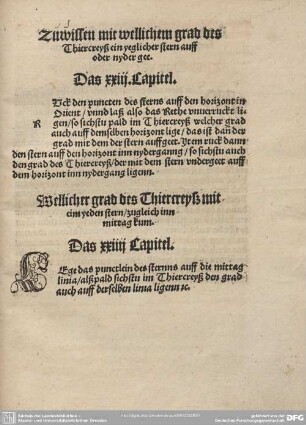 Zuwissen mit wellichem grad des
Thiercreyß ein yeglicher stern auff
oder nyder gee.
Das xxiij. Capitel.
Uck den puncten des sterns auff den horizont in
Orient / vnnd laß also das Rethe vnuerruckt li
R
gen / so sichstu pald im Thiercreyß welcher grad
auch auff demselben horizont lige / das ist dañ der
grad mit dem der stern auff geet. Ytem ruck dann
den stern auff den horizont inn nyderganng / so sichstu auch
den grad des Thiercreyß / der mit dem stern vndergeet auff
dem horizont inn nydergang ligenn.
Wellicher grad des Thiercreyß mit
eim yeden stern / zugleich inn
mittag kum.
Das xxiiij Capitel.
Ege das punctlein des sternns auff die mittag
linia / alßpald sichstu im Thiercreyß den grad
auch auff derselben linia ligenn ꝛc.
Sächsische Landesbibliothek -
Staats- und Universitätsbibliothek Dresden
gefördert von der
Deutschen Forschungsgemeinschaft
DFG